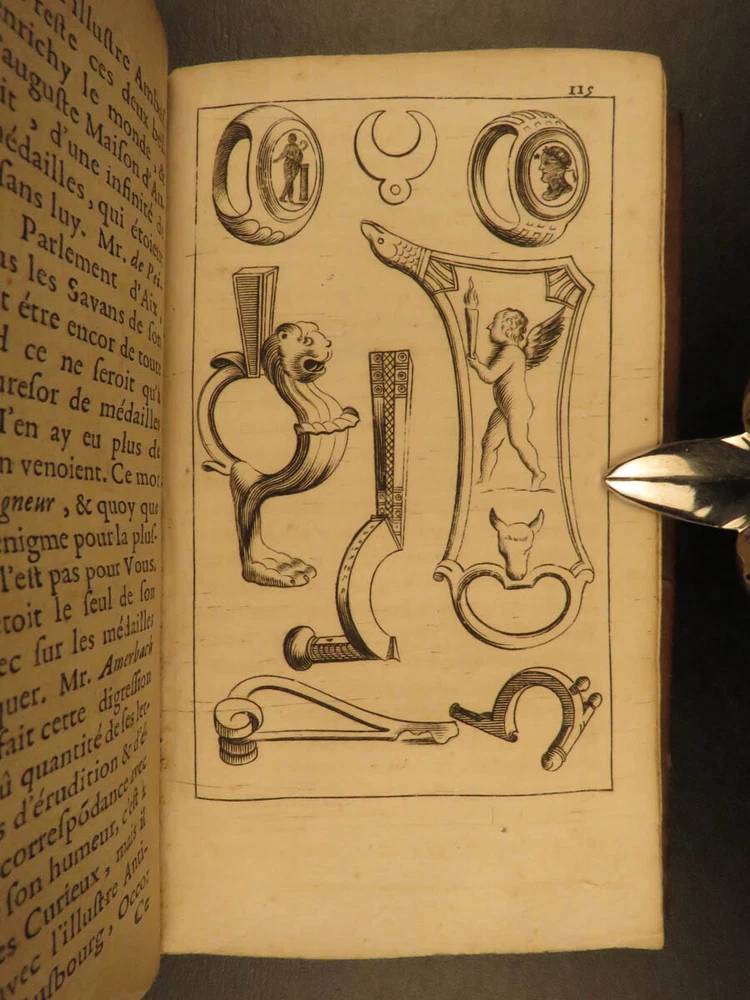 l'illuſtre Ambaſ
reſte ces deux bel
nrichy le monde, &
auguſte Maiſon d'Au
it, d'une infinité de
médailles, qui étoient
ſans luy. Mr. de Pei.
Parlement d'Aix,
s les Savans de ſon
t étre encor de toute
d ce ne ſeroit qu'à
treſor de médailles
l'en ay eu plus de
n venoient. Ce mot
gneur, & quoy que
enigme pour la pluſ-
l'eſt pas pour Vous.
toit le ſeul de ſon
ec ſur les médailles
quer. Mr. Amerbach
fait cette digreſſion
û quantité de ſes let-
s d'érudition & d'é
correſpódance avec
ſon humeur, c'eſt à
es Curieux, mais il
avec l'illuſtre Anti-
usbourg, Occo:
Ce
115